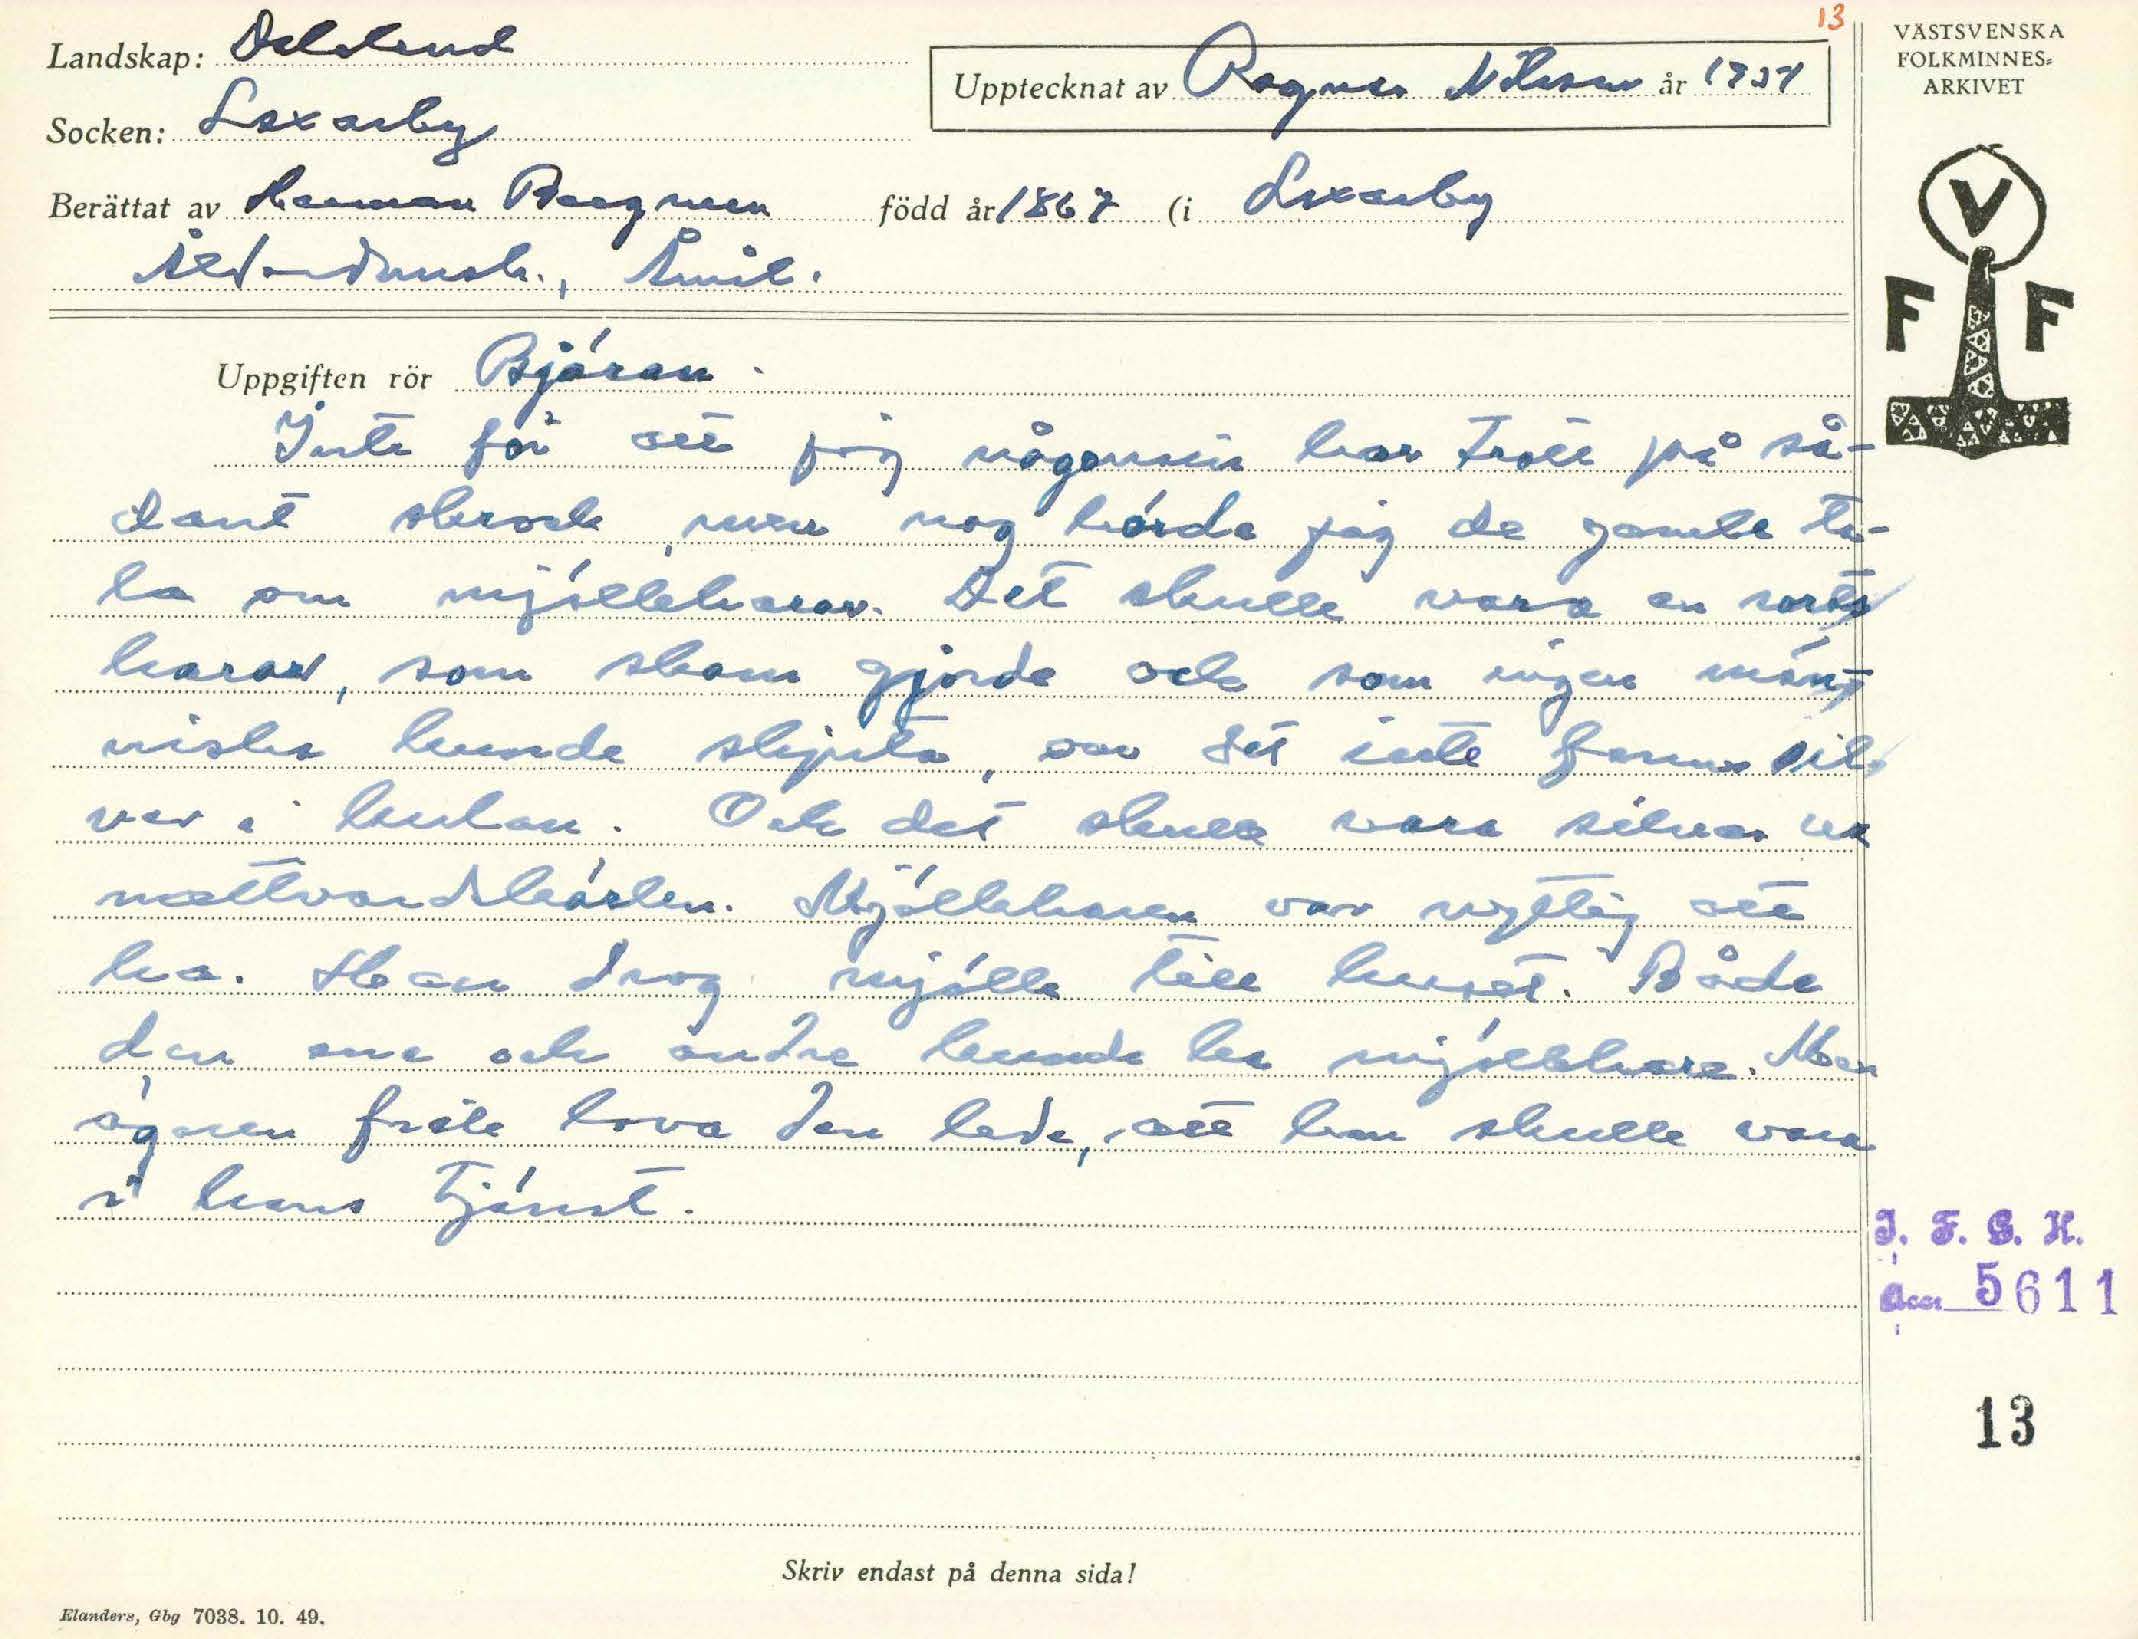 13
VÄSTSVENSKA
FOLKMINNES-
ARKIVET
Landskap: Dalsland
Upptecknat av Ragnar Nilsson år 1951
Socken: Laxarby
Berättat av Herman Bergman född år 1867 (i Laxarby
Ålderdomsh., Åmål.
V
F F
Uppgiften rör Bjäran.
Inte för att jag någonsin har trott på så-
dant skrock, men nog hörde jag de gamle ta-
la om mjölkharar. Det skulle vara en sorts
harar, som skam gjorde och som ingen män-
niska kunde skjuta, om det inte fanns sil-
ver i kulan. Och det skulle vara silver ur
nattvardskärlen. Mjölkharen var nyttig att
ha. Han drog mjölk till huset. Både
den ene och andre kunde ha mjölkhare. Men
ägaren fick lova den lede, att han skulle vara
i hans tjänst.
I. F. G. H.
acc 5611
13
Skriv endast på denna sida!
Elanders, Gbg 7038. 10. 49.